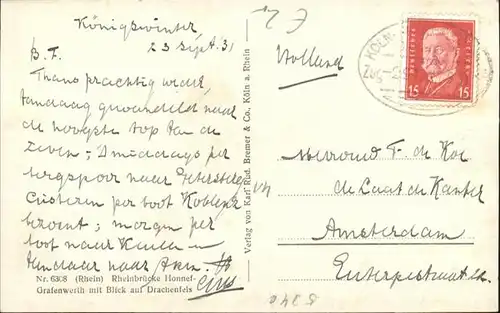 Königswinter
23 Sept. 31
B. F.
Thans prachtig weer,
vandaag gewandeld naar
de hoogste top van de
zeven; 's middags per
bergspoor naar Petersberg
Gisteren per boot Koblenz
bezocht; morgen per
boot naar Keulen en
naar
Nr. 6308 (Rhein) Rheinbrücke Honnef-
Grafenwerth mit Blick auf Drachenfels
Verlag von Karl Rud. Bremer & Co., Köln a. Rhein
Holland
KÖLN
DEUTSCHES REICH
15 15
Mevrouw F. de
de Laat de Kanter
Amsterdam
Euterpestraat